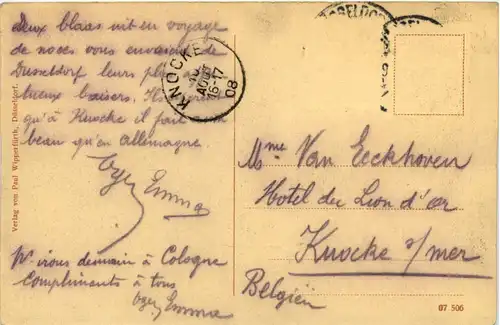 Deux blaas uit en voyage
de noces vous envoient de
Dusseldorf leurs plus
heureux baisers.
qu'à Knocke il fait
beau qu'en Allemagne.
Emma
Ns irons demain à Cologne
Compliments à tous
Emma
KNOCKE
AOUT
16-17
08
Mme Van Eeckhoven
Hotel du Lion d'or
Knocke s/mer
Belgien
Verlag von Paul Wipperfürth, Düsseldorf.
07 506